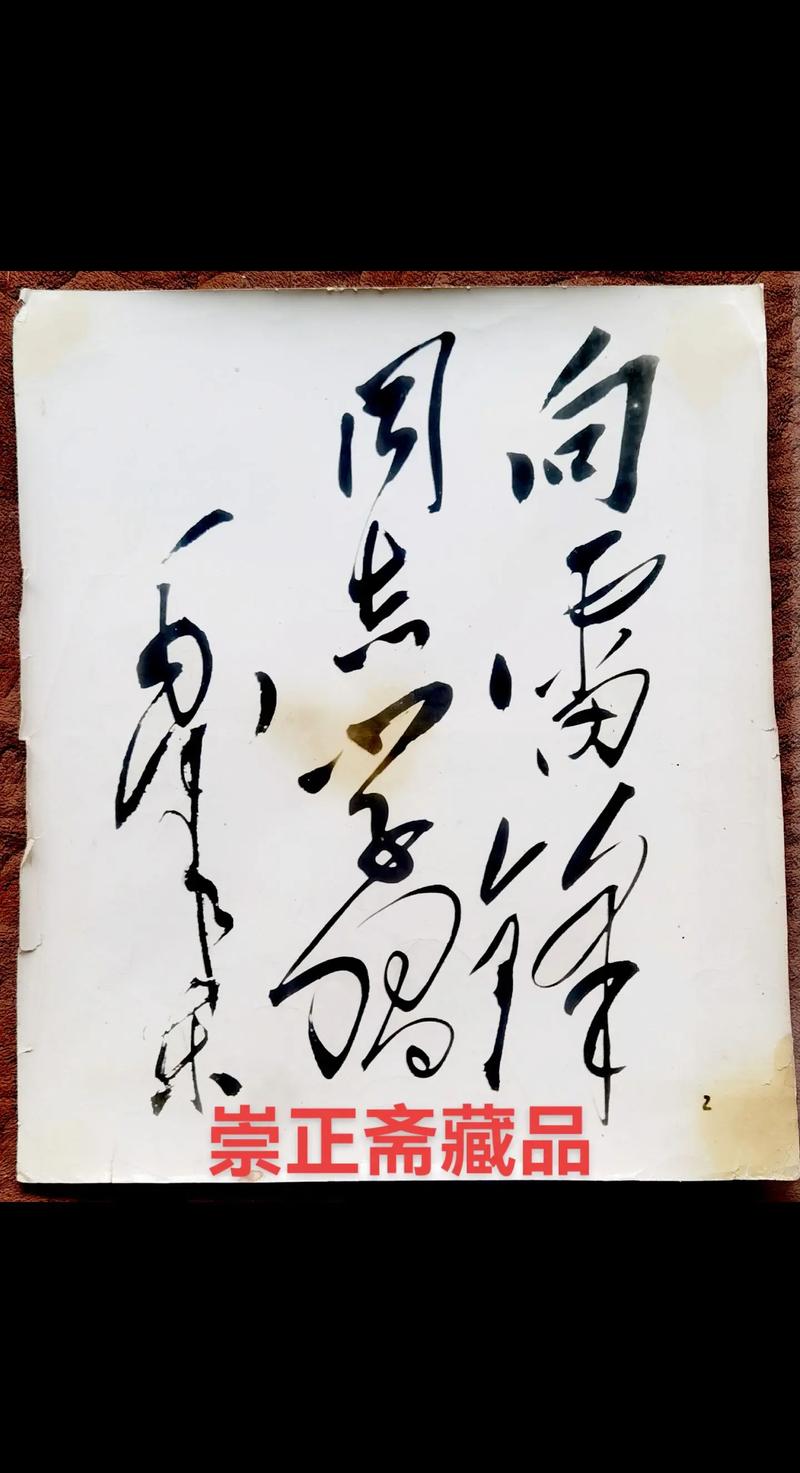 向雷锋
同志学习
毛泽东
2
崇正斋藏品